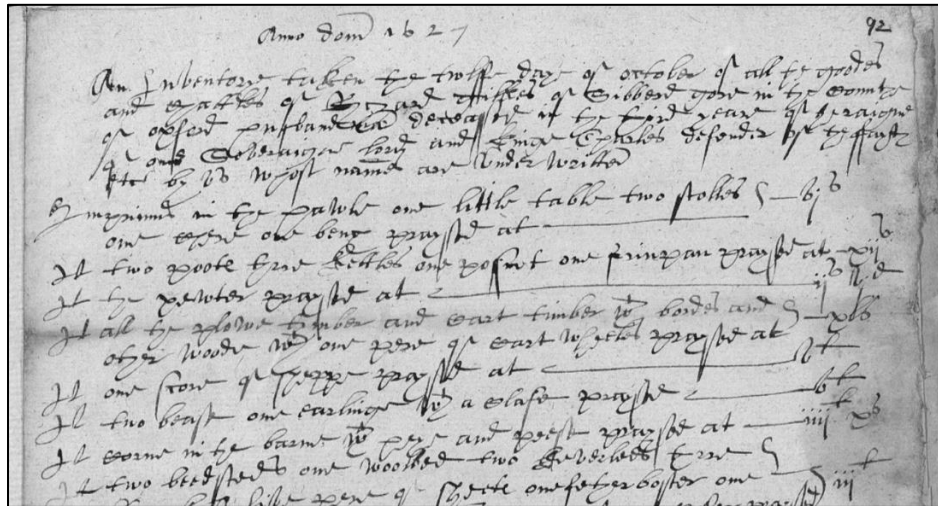 92
Anno dom 1627
An Inventorie taken the twelffe daye of october of all the goodes
and chattles of Rychard of Sibberd gore in the Countie
of oxford husbandman deceased in the third yeare of the raigne
of our Soveraigne lord and Kinge Charles defender of the fayth
etc by us whose names are under written
Imprimis in the hawle one little table two stolles vjs
one chere one benc praysed at
It two poote thre kettles one posnet one friinpan praysed at xijs
It the pewter praysed at ijs d
It all the plowe timber and cart timber wth bordes and xls
other woode wth one pere of cart wheeles praysed at
It one score of sheppe praysed at vl
It two bease one earlinge wth a calfe praysed vl
It corne in the barne wth heye and peese praysed at iiijl xs
It two beedsteds one woolbed two keverleds thre
pere of sheetes one fether boster one iijl